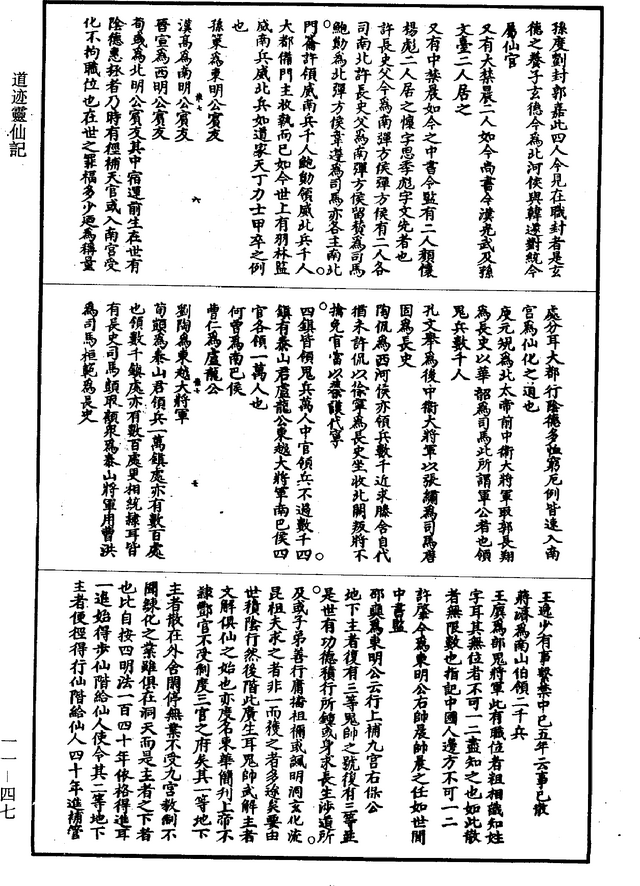 道迹靈仙記
一一—四七
孫慶劉封郭嘉此四人今見在職封者是玄
德之養子玄德今為北河侯與韓遂對統今
屬仙官
又有大禁晨二人如今尚書令漢光武及孫
文臺二人居之
又有中禁晨如今之中書令監有二人顏懷
楊彪二人居之懷字思季彪字文先者也
許長史父今為南彈方侯彈方侯有二人各
司南北許長史父為南彈方侯留贊為司馬
鮑勛為北彈方侯韋遵為司馬亦各主南北
門籥許領威南兵千人鮑勛領威北兵千人
大都備門主收執而已如今世上有羽林監
威南兵威北兵如道家天丁力士甲卒之例
也
孫策為東明公賓友
漢高為南明公賓友
晉宣為西明公賓友
荀彧為北明公賓友其中宿運前生在世有
陰德惠救者乃時有徑補天官或入南宮受
化不拘職位也在世之罪福多少迺為稱量
六
處分耳大都行陰德多恤窮厄例皆速入南
宮為仙化之道也
庾元規為北太帝前中衛大將軍取郭長翔
為長史以華歆為司馬此所謂軍公者也領
鬼兵數千人
孔文舉為後中衛大將軍以張繡為司馬唐
因為長史
陶侃為西河侯亦領兵數千近求滕含自代
猶未許侃以徐寧為長史坐收北闕叛將不
擒免官當以蔡謨代寧
四鎮皆領鬼兵萬人中官領兵不過數千四
鎮有泰山君盧龍公東越大將軍南巴侯四
官各領一萬人也
何曾為南巴侯
曹仁為盧龍公
劉陶為東越大將軍
荀顗為泰山君領兵一萬鎮處亦有數百處
也領數千鎮處亦有數百處更相統隸耳皆
有長史司馬顗取顧眾為泰山將軍用曹洪
為司馬桓範為長史
七
王逸少有事繫禁中已五年云事已散
蔣濟為南山伯領二千兵
王廙為部鬼將軍此有職位者粗相識知姓
字耳其無位者不可一二盡知之也如此散
者無限數也指記中國人邊方不可一二
許肇今為東明公右帥晨帥晨之任如世間
中書監
邵奭為東明公云行上補九宮右保公
地下主者復有三等鬼帥之號復有三等並
是世有功德積行所鍾或身求長生步道所
及或子弟善行庸播祖禰或諷明洞玄化流
昆祖夫求之者非一而後之者多途矣要由
世積陰行然後階此廣生耳鬼帥武解主者
文解俱仙之始也亦度名東華簡刊上帝不
隸酆宮不受制度三官之府矣其一等地下
主者散在外舍閒停無業不受九宮教制不
聞練化之業雖俱在洞天而是主者之下者
也比自按四明法一百四十年依格得進耳
一進始得步仙階給仙人使令其二等地下
主者便徑得行仙階給仙人四十年進補管